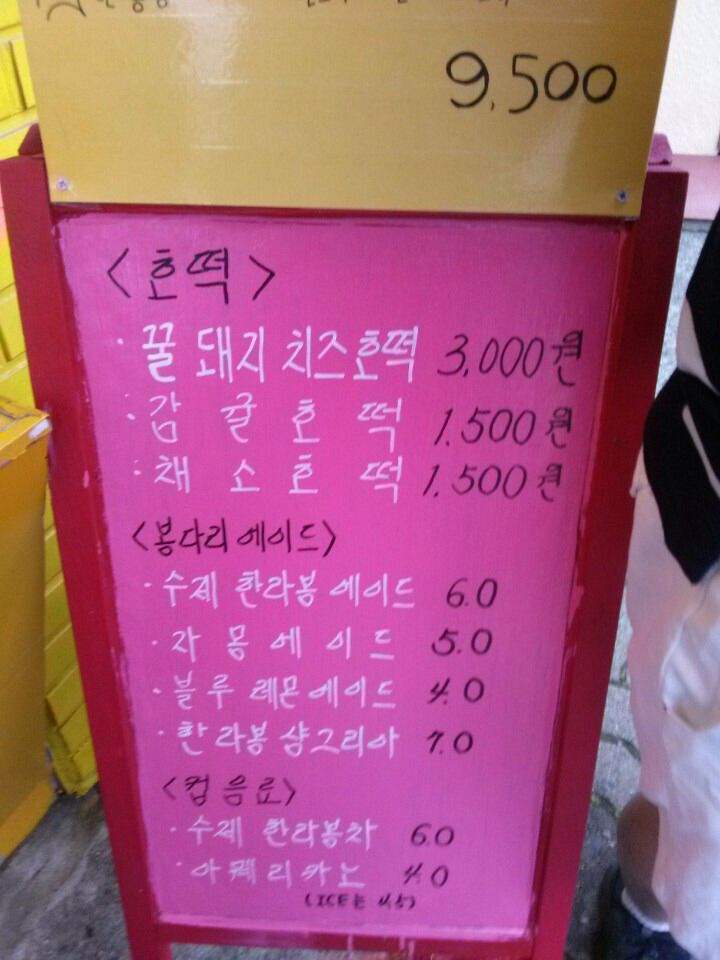 9,500
<호떡>
· 꿀돼지 치즈호떡 3,000원
· 감귤호떡 1,500원
· 채소호떡 1,500원
<봉다리에이드>
· 수제 한라봉에이드 6.0
· 자몽에이드 5.0
· 블루레몬에이드 4.0
· 한라봉샹그리아 7.0
<컵음료>
· 수제 한라봉차 6.0
· 아메리카노 4.0
(ICE는 4.5)